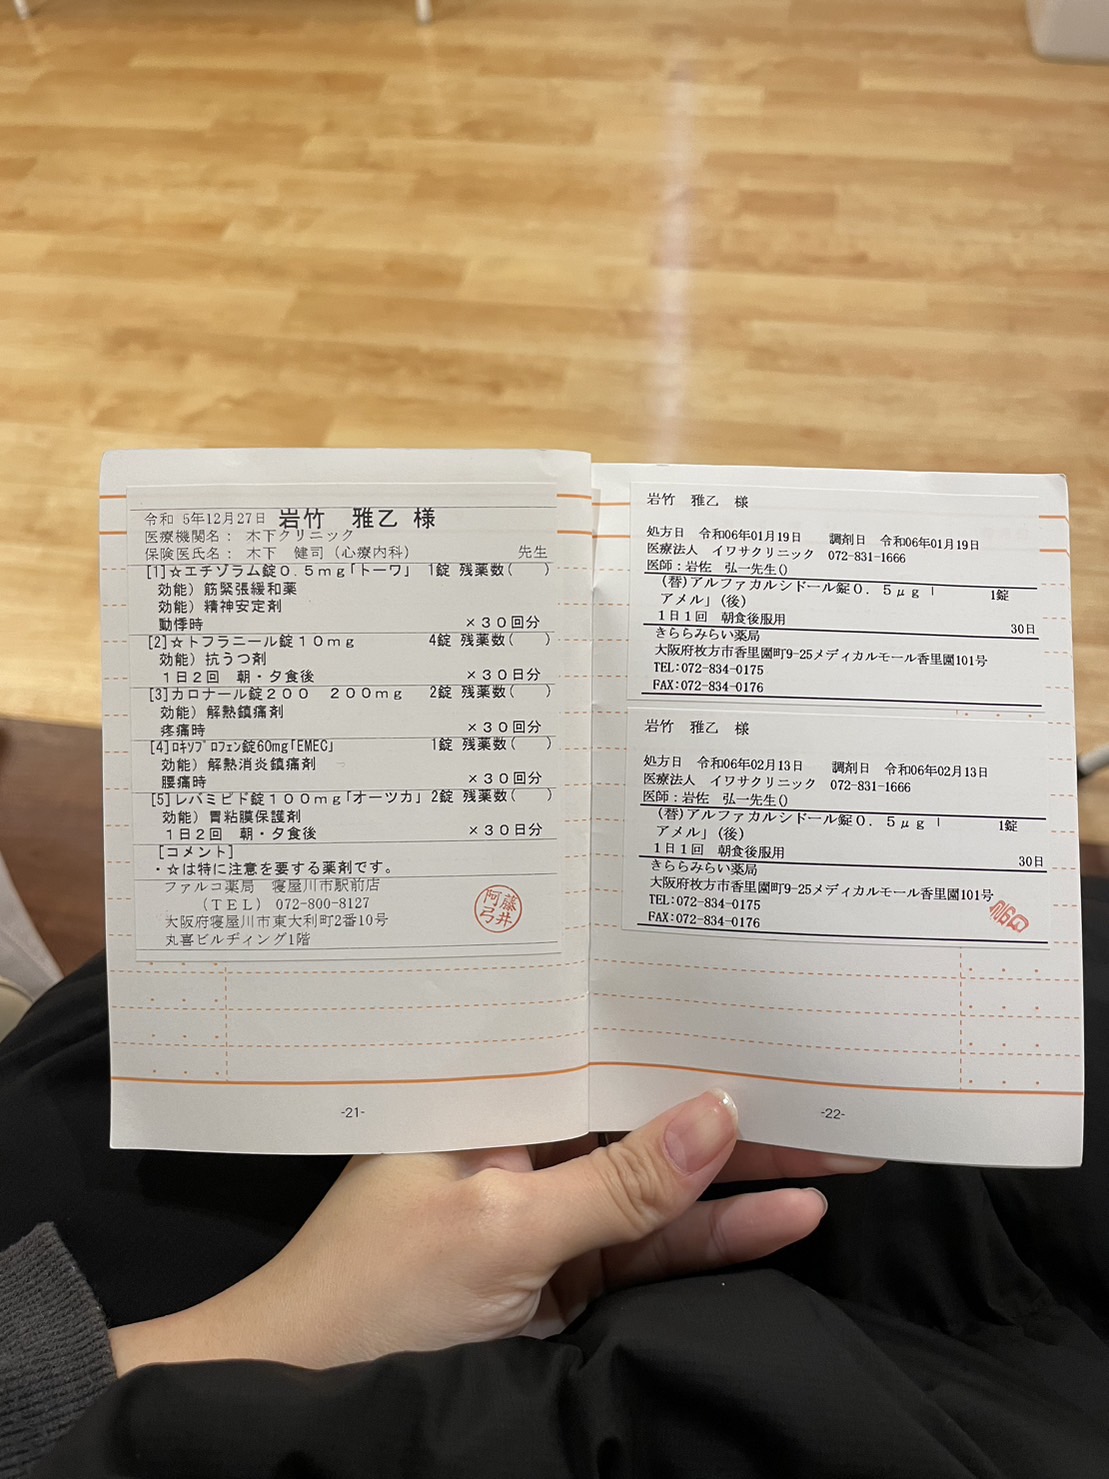 令和 5年12月27日 岩竹 雅乙 様
医療機関名： 木下クリニック
保険医氏名： 木下 健司（心療内科） 先生
[1]☆エチゾラム錠０．５ｍｇ「トーワ」 1錠 残薬数( )
効能）筋緊張緩和薬
効能）精神安定剤
動悸時 ×３０回分
[2]☆トフラニール錠１０ｍｇ 4錠 残薬数( )
効能）抗うつ剤
１日２回 朝・夕食後 ×３０日分
[3]カロナール錠２００ ２００ｍｇ 2錠 残薬数( )
効能）解熱鎮痛剤
疼痛時 ×３０回分
[4]ﾛｷｿﾌﾟﾛﾌｪﾝ錠60mg｢EMEC｣ 1錠 残薬数( )
効能）解熱消炎鎮痛剤
腰痛時 ×３０回分
[5]レバミピド錠１００ｍｇ「オーツカ」 2錠 残薬数( )
効能）胃粘膜保護剤
１日２回 朝・夕食後 ×３０日分
[コメント]
・☆は特に注意を要する薬剤です。
ファルコ薬局 寝屋川市駅前店
（ＴＥＬ） 072-800-8127
大阪府寝屋川市東大利町2番10号
丸喜ビルヂィング1階
阿藤弓井
-21-
岩竹 雅乙 様
処方日 令和06年01月19日 調剤日 令和06年01月19日
医療法人 イワサクリニック 072-831-1666
医師：岩佐 弘一先生()
(替)アルファカルシドール錠０．５μｇ「 1錠
アメル」(後)
１日１回 朝食後服用 30日
きららみらい薬局
大阪府枚方市香里園町9-25メディカルモール香里園101号
TEL:072-834-0175
FAX:072-834-0176
岩竹 雅乙 様
処方日 令和06年02月13日 調剤日 令和06年02月13日
医療法人 イワサクリニック 072-831-1666
医師：岩佐 弘一先生()
(替)アルファカルシドール錠０．５μｇ「 1錠
アメル」(後)
１日１回 朝食後服用 30日
きららみらい薬局
大阪府枚方市香里園町9-25メディカルモール香里園101号
TEL:072-834-0175
FAX:072-834-0176
-22-